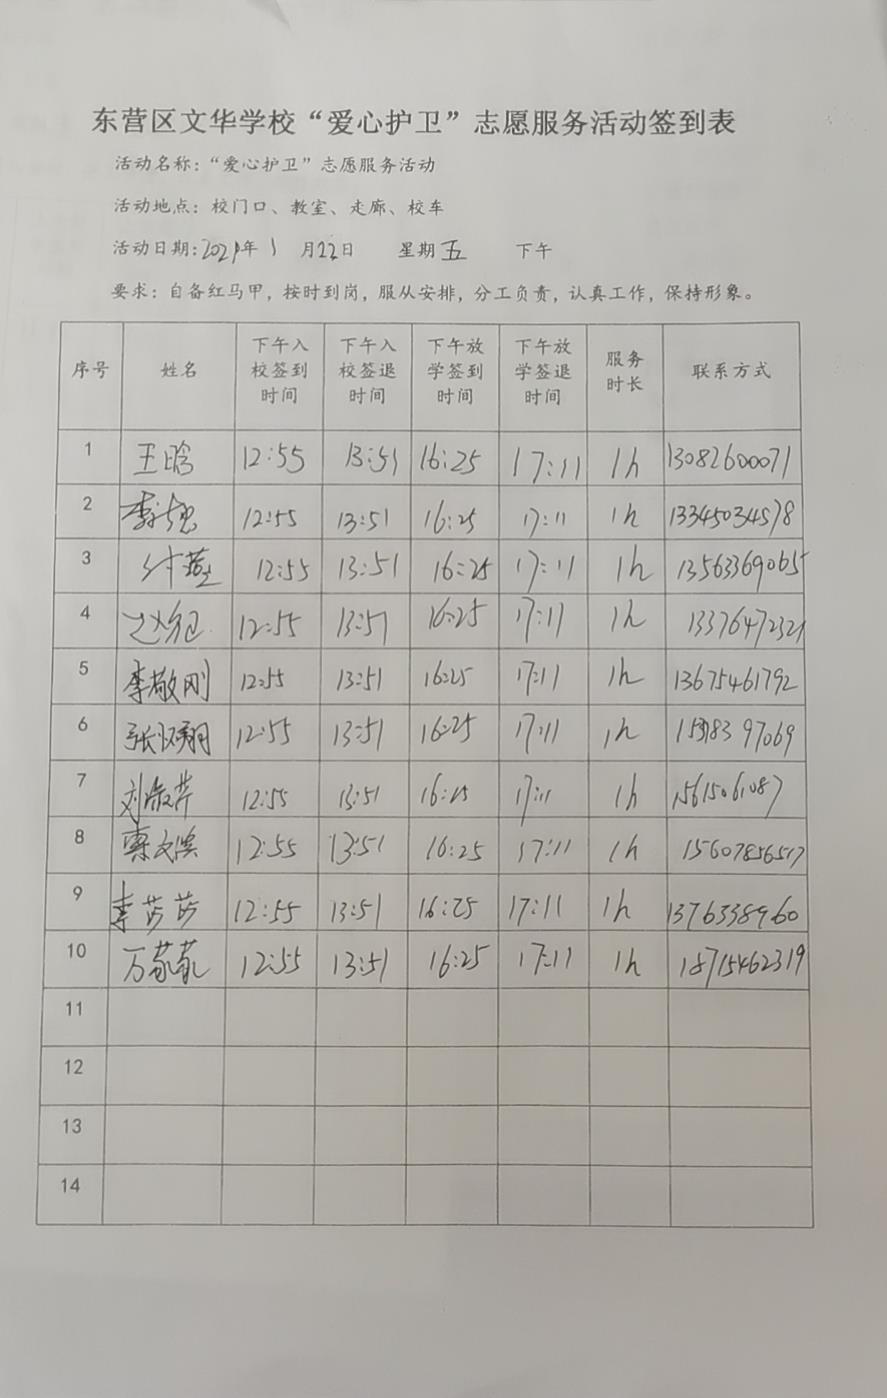 东营区文华学校“爱心护卫”志愿服务活动签到表
活动名称：“爱心护卫”志愿服务活动
活动地点：校门口、教室、走廊、校车
活动日期：2021年 1 月22日 星期五 下午
要求：自备红马甲，按时到岗，服从安排，分工负责，认真工作，保持形象。
序号 姓名 下午入校签到时间 下午入校签退时间 下午放学签到时间 下午放学签退时间 服务时长 联系方式
1 王晗 12:55 13:51 16:25 17:11 1h 13082600071
2 12:55 13:51 16:25 17:11 1h 13345034578
3 12:55 13:51 16:25 17:11 1h 13563369065
4 12:55 13:51 16:25 17:11 1h 13376472321
5 李敬刚 12:55 13:51 16:25 17:11 1h 13675461792
6 12:55 13:51 16:25 17:11 1h
7 刘淑芹 12:55 13:51 16:25 17:11 1h
8 12:55 13:51 16:25 17:11 1h 15607856517
9 李芳芳 12:55 13:51 16:25 17:11 1h
10 12:55 13:51 16:25 17:11 1h 18715462319
11
12
13
14